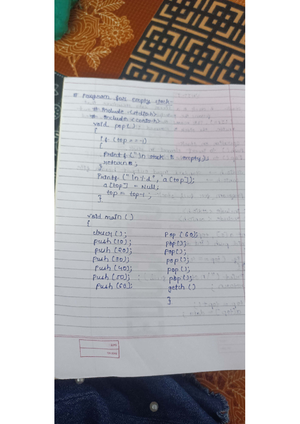 # Program for empty stack
# include <stdio.h>
# include <conio.h>
void pop()
{
if (top == -1)
{
printf ("\n stack is empty");
return;
}
printf ("\n %d", a[top]);
a[top] = NULL;
top = top-1;
}
void main ( )
{
clrscr ( );
push (10);
push (20);
push (30);
push (40);
push (50);
push (60);
pop (60);
pop( );
pop( );
pop( );
pop( );
pop( );
getch ( )
}